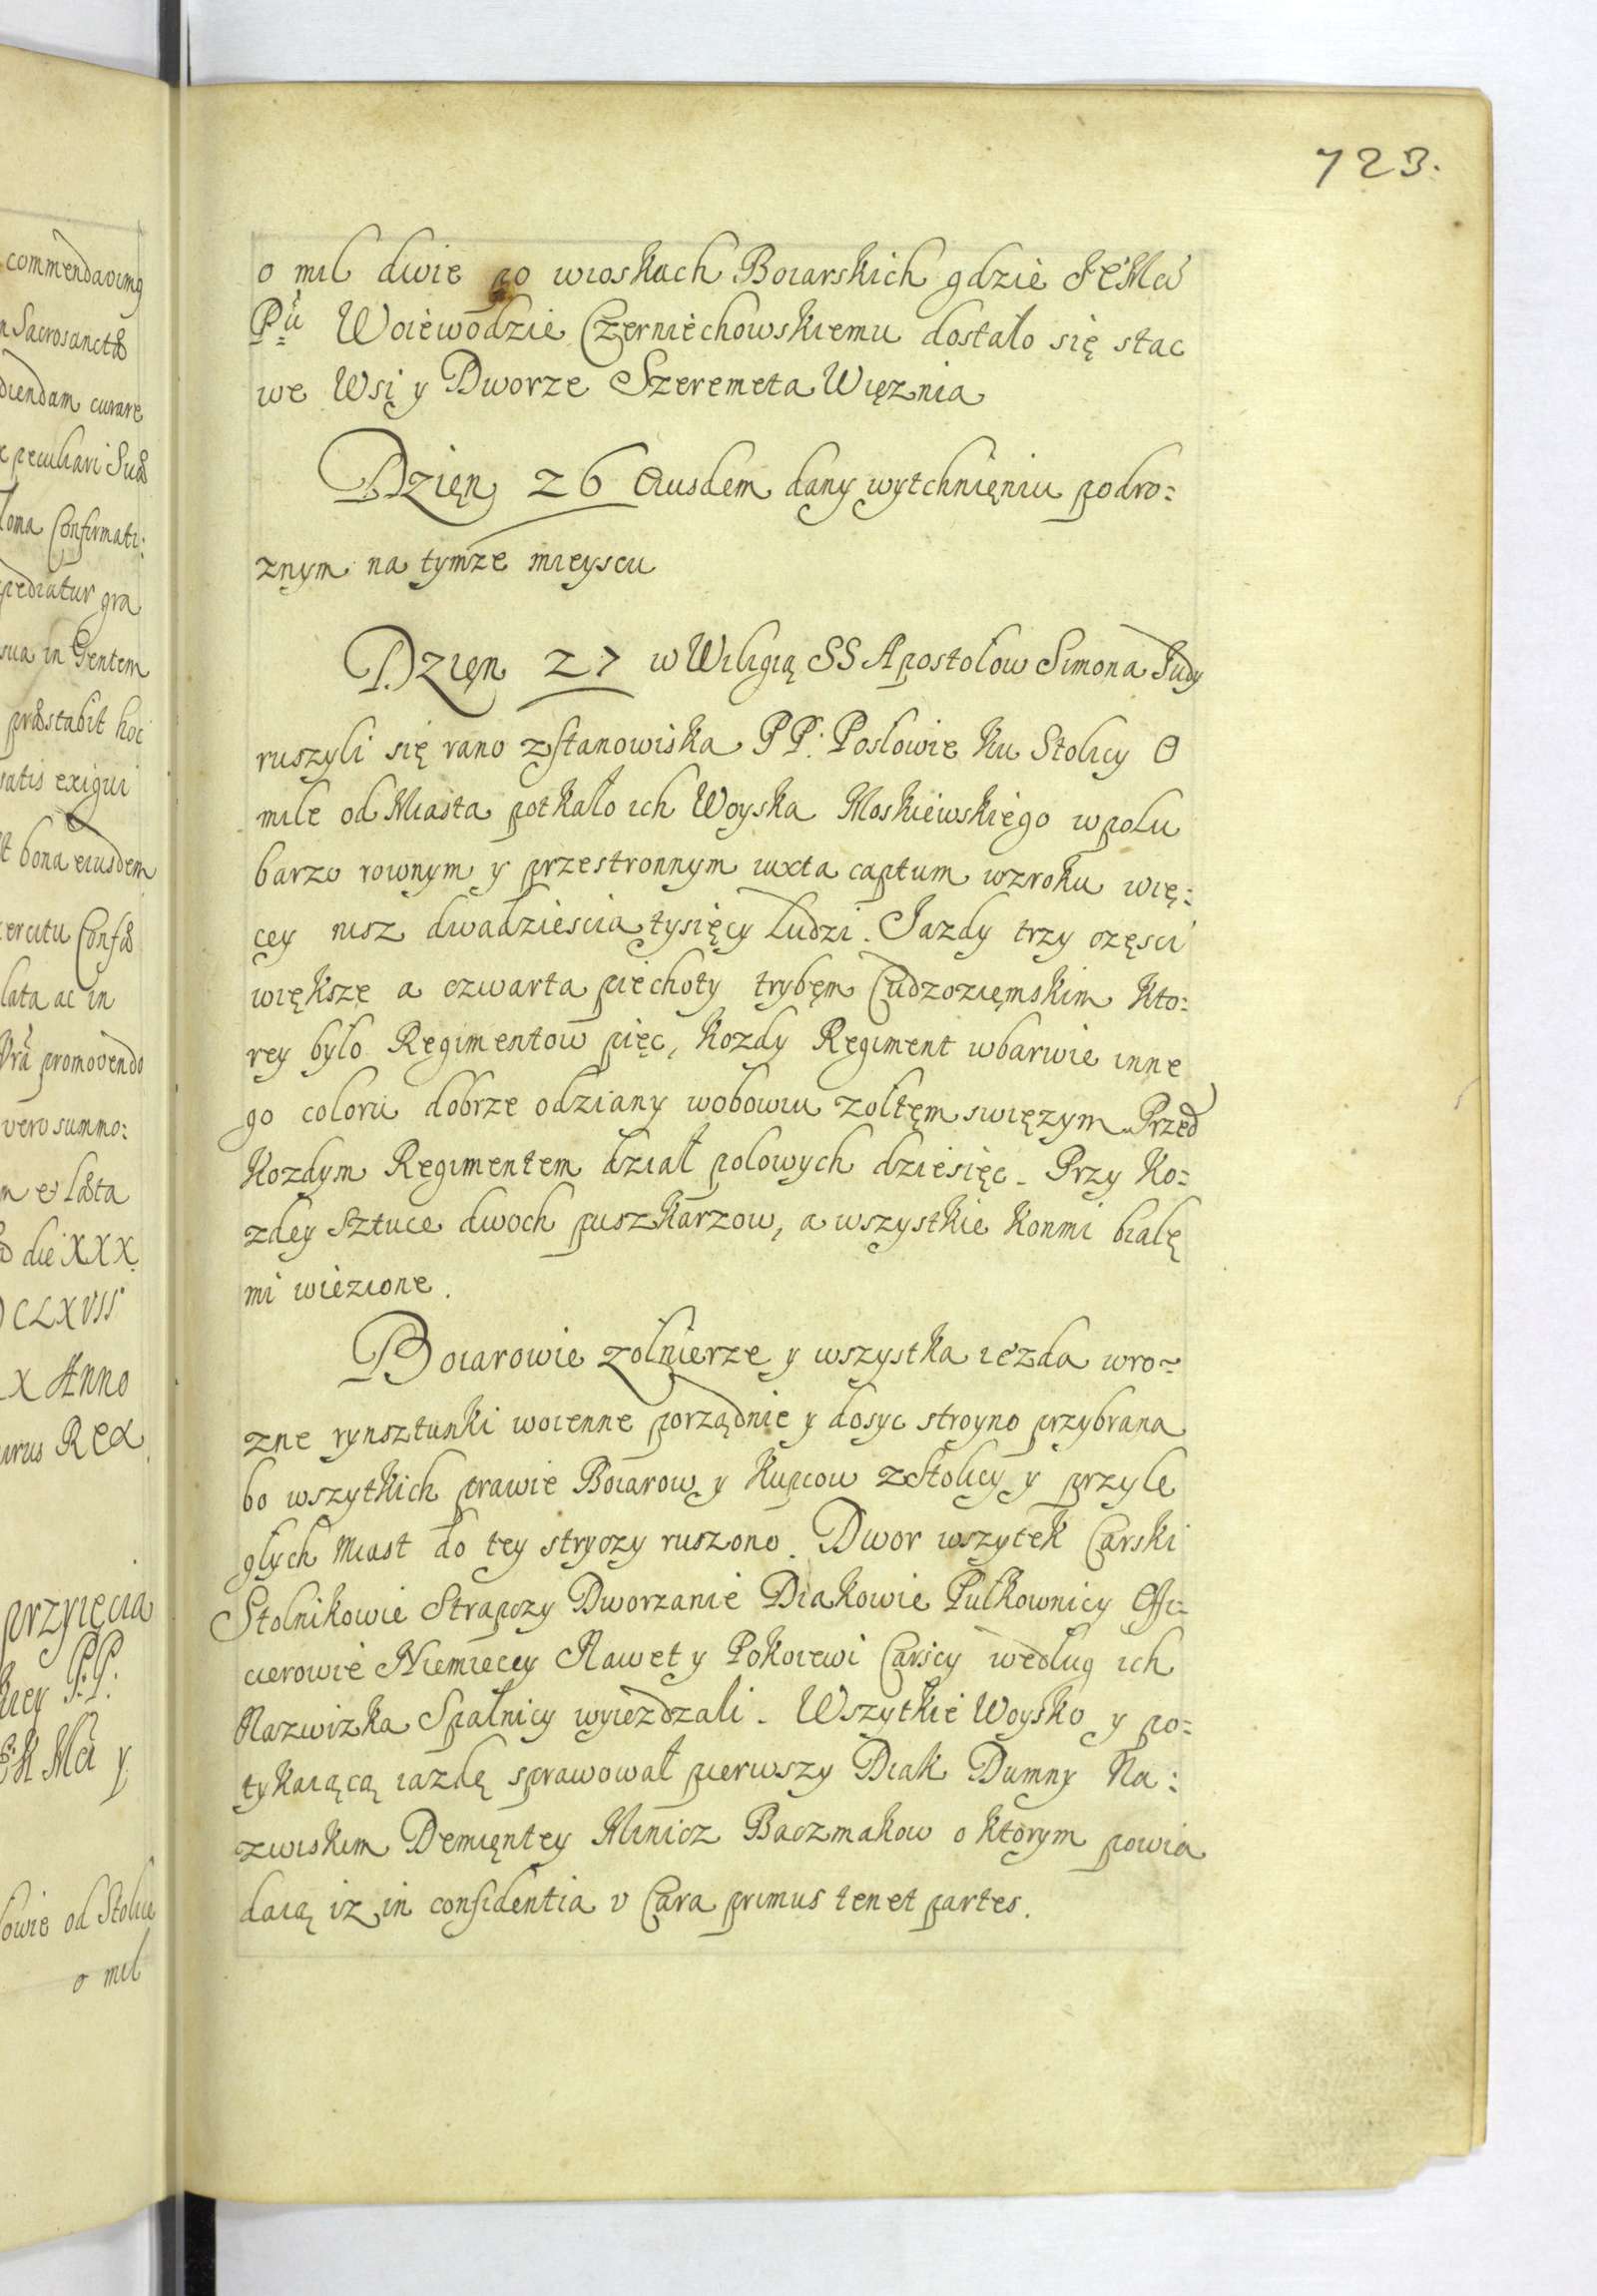 723.
o mil dwie po wioskach Boiarskich gdzie JEMci
Pu Woiewodzie Czerniechowskiemu dostało się stac
we Wsi y Dworze Szeremeta Więznia
Dzięn 26 Eiusdem dany wytchnięniu podro=
znym na tymze mieyscu
Dzięn 27 w Wiligią SS Apostolow Simona Judy
ruszyli się rano z stanowiska PP. Posłowie ku Stolicy O
mile od Miasta potkało ich Woyska Moskiewskiego w polu
barzo rownym y przestronnym iuxta captum wzroku wię=
cey nisz dwadziescia tysięcy Ludzi. Jazdy trzy częsci
większe a czwarta piechoty trybęm Cudzozięmskim kto=
rey było Regimentow pięc, kozdy Regiment w barwie inne
go coloru dobrze odziany w obowiu zoltęm swięzym. Przed
kozdym Regimentem dział polowych dziesięc. Przy ko=
zdey sztuce dwoch puszkarzow, a wszystkie konmi białę
mi wiezione.
Boiarowie zolnierze y wszystka iezda w ro=
zne rynsztunki woienne porządnie y dosyc stroyno przybrana
bo wszytkich prawie Boiarow y kupcow z Stolicy y przyle
głych Miast do tey stryczy ruszono. Dwor wszytek Carski
Stolnikowie Strapczy Dworzanie Diakowie Pułkownicy Offi=
cierowie Niemiecey Nawet y Pokoiewi Carscy według ich
Nazwizka Spalnicy wyiezdzali. Wszytkie Woysko y po=
tykaiącą iazdę sprawował pierwszy Diak Dumny Na=
zwiskim Demięntey Minicz Baczmakow o ktorym powia
daią iz in confidentia v Cara primus tenet partes.
commendavimq
Sacrosanctæ
diendam curare
peculiari Suæ
Confirmati:
pediatur gra
sua in Gentem
præstabit hoc
satis exigui
bona eiusdem
lata ac in
promovendo
vero summo:
die XXX
CLXVII
X Anno
Rex
przyięcia
PP.
Mci y
owie od Stolice
o mil